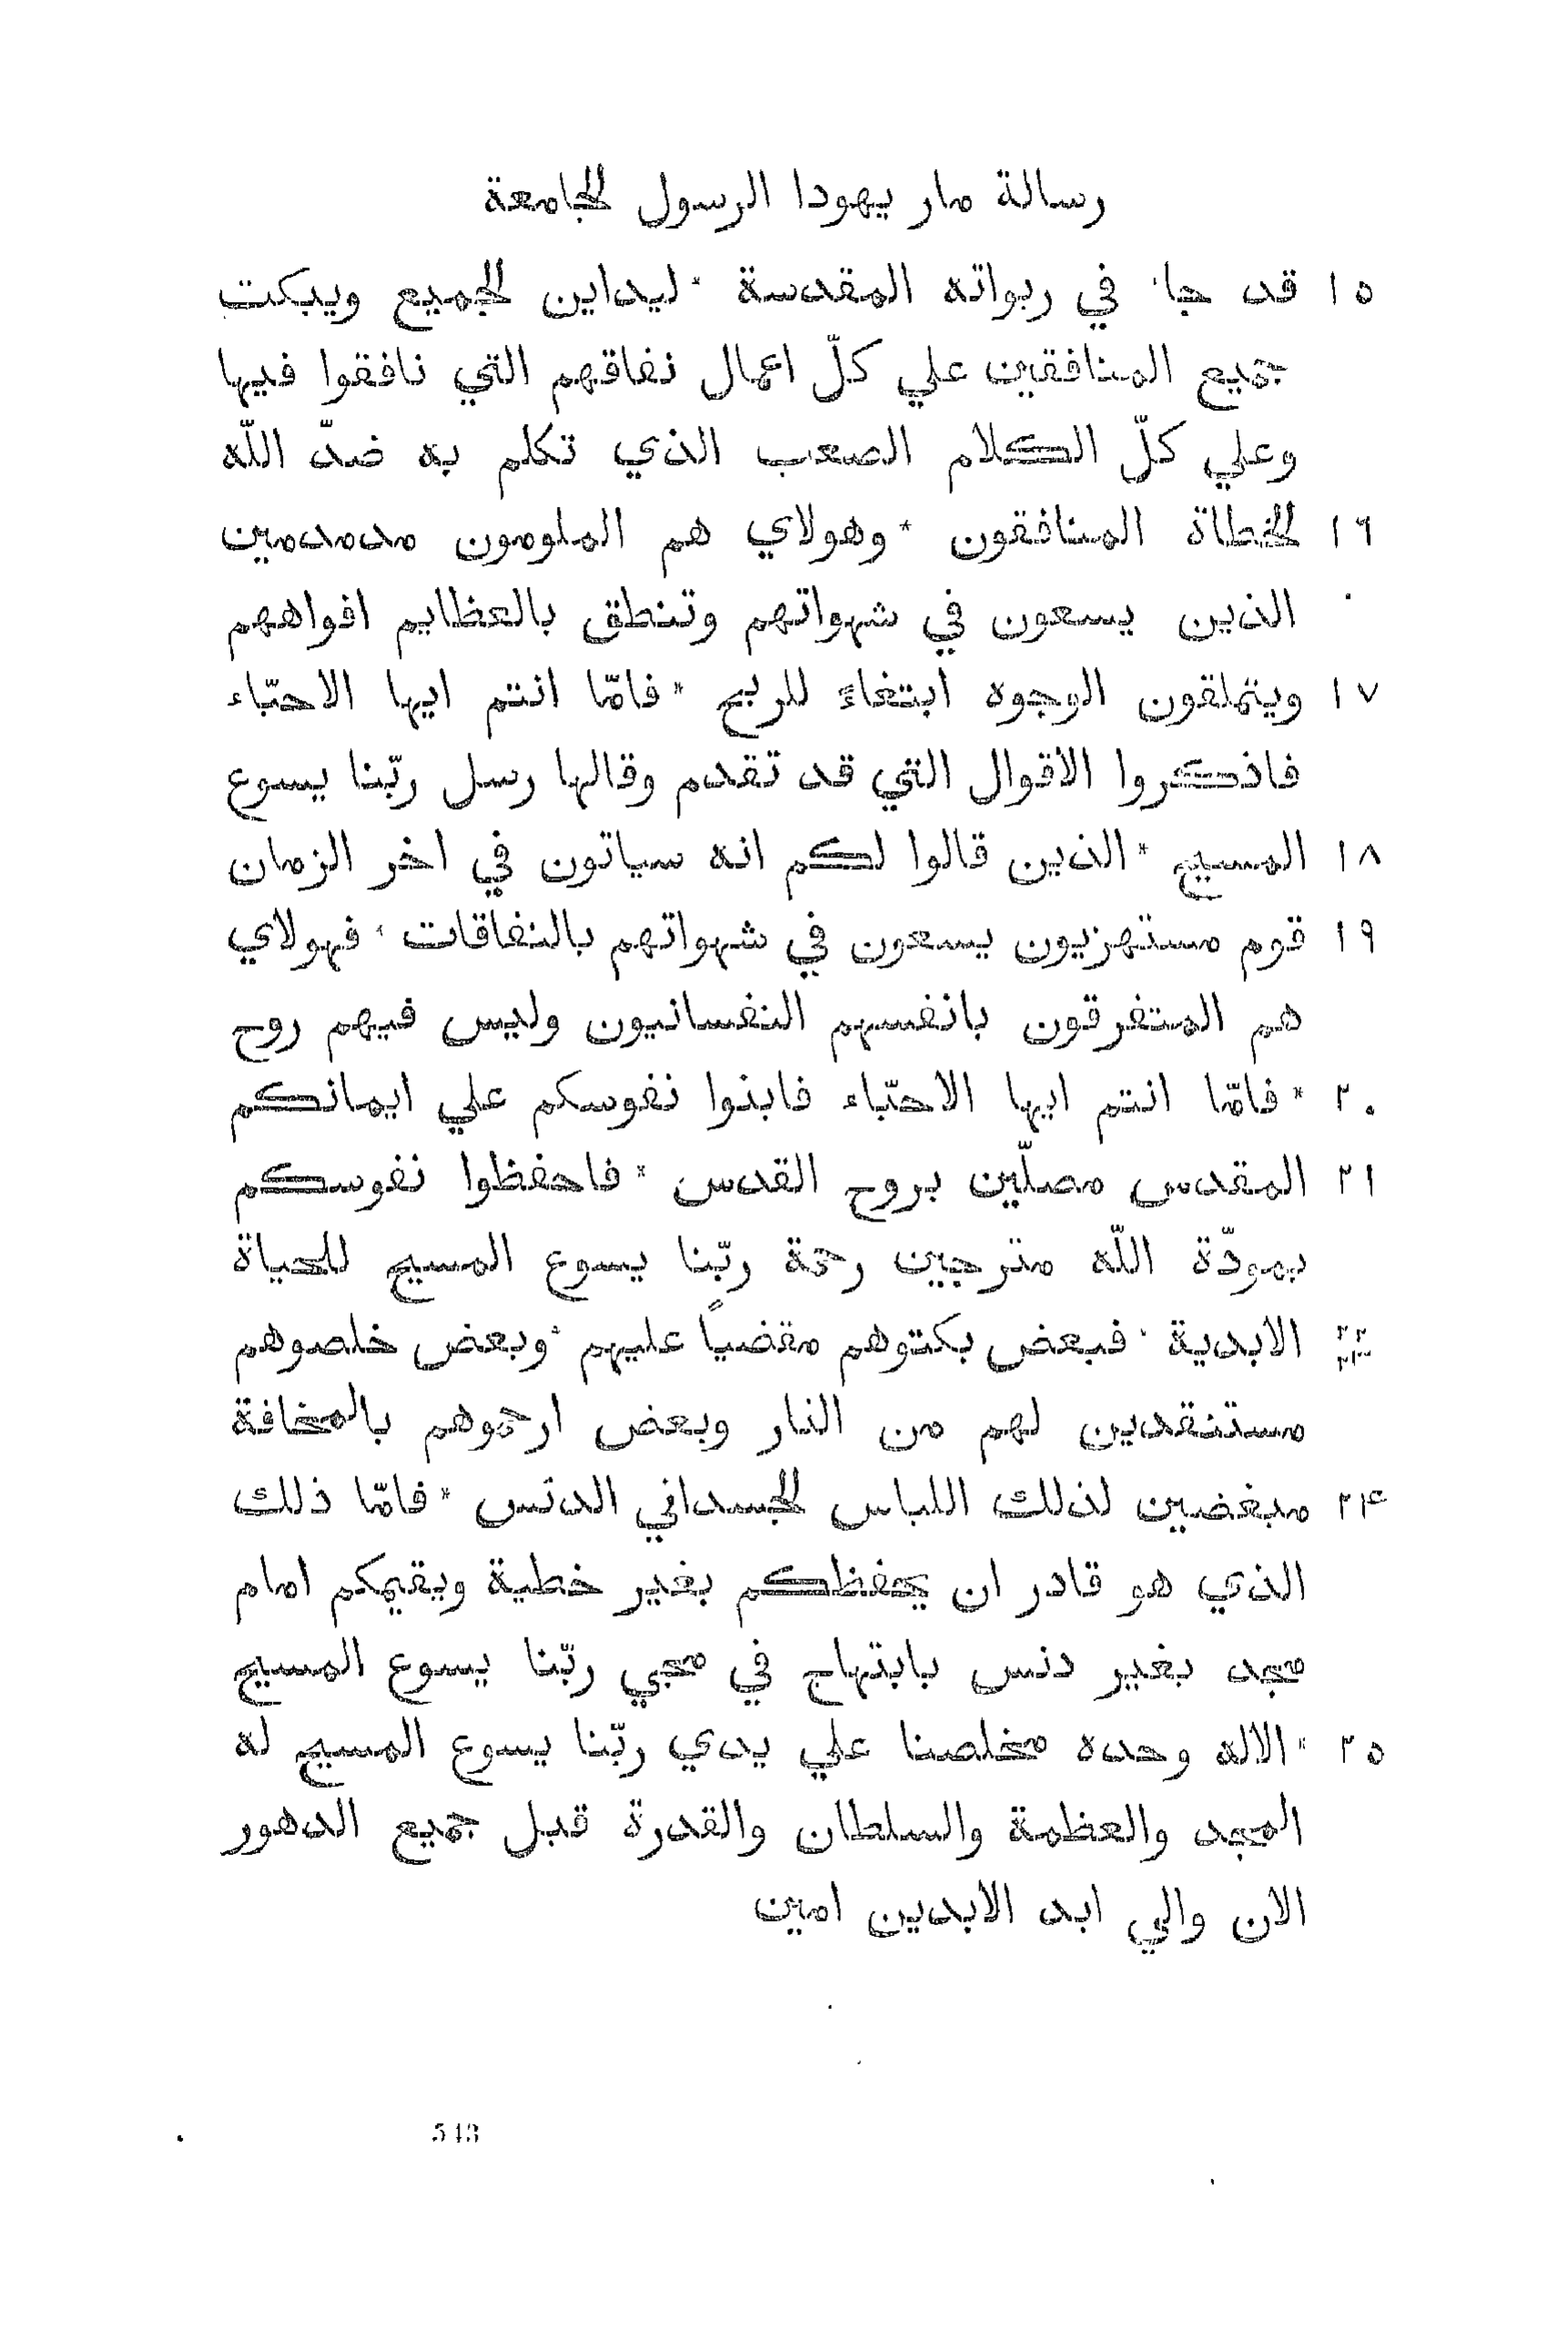 رسالة مار يهودا الرسول الجامعة
١٥ قد جا في ربواته المقدسة * ليداين الجميع ويبكت
جميع المنافقين علي كلّ اعمال نفاقهم التي نافقوا فيها
وعلي كلّ الكلام الصعب الذي تكلم به ضدّ اللّه
١٦ الخطاة المنافقون * وهولاي هم الملومون مدمدمين
الذين يسعون في شهواتهم وتنطق بالعظايم افواههم
١٧ ويتملقون الوجوه ابتغاءً للربح * فامّا انتم ايها الاحبّاء
فاذكروا الاقوال التي قد تقدم وقالها رسل ربّنا يسوع
١٨ المسيح * الذين قالوا لكم انه سياتون في اخر الزمان
١٩ قوم مستهزيون يسعون في شهواتهم بالنفاقات * فهولاي
هم المتفرقون بانفسهم النفسانيون وليس فيهم روح
٢٠ * فامّا انتم ايها الاحبّاء فابنوا نفوسكم علي ايمانكم
٢١ المقدس مصلّين بروح القدس * فاحفظوا نفوسكم
بمودّة اللّه مترجين رحمة ربّنا يسوع المسيح للحياة
٢٢ ٢٣ الابدية * فبعض بكتوهم مقضياً عليهم * وبعض خلصوهم
مستنقدين لهم من النار وبعض ارحموهم بالمخافة
٢۴ مبغضين لذلك اللباس الجسداني الدنس * فامّا ذلك
الذي هو قادر ان يحفظكم بغير خطية ويقيمكم امام
مجد بغير دنس بابتهاج في مجي ربّنا يسوع المسيح
٢٥ * الاله وحده مخلصنا علي يدي ربّنا يسوع المسيح له
المجد والعظمة والسلطان والقدرة قبل جميع الدهور
الان والي ابد الابدين امين
543